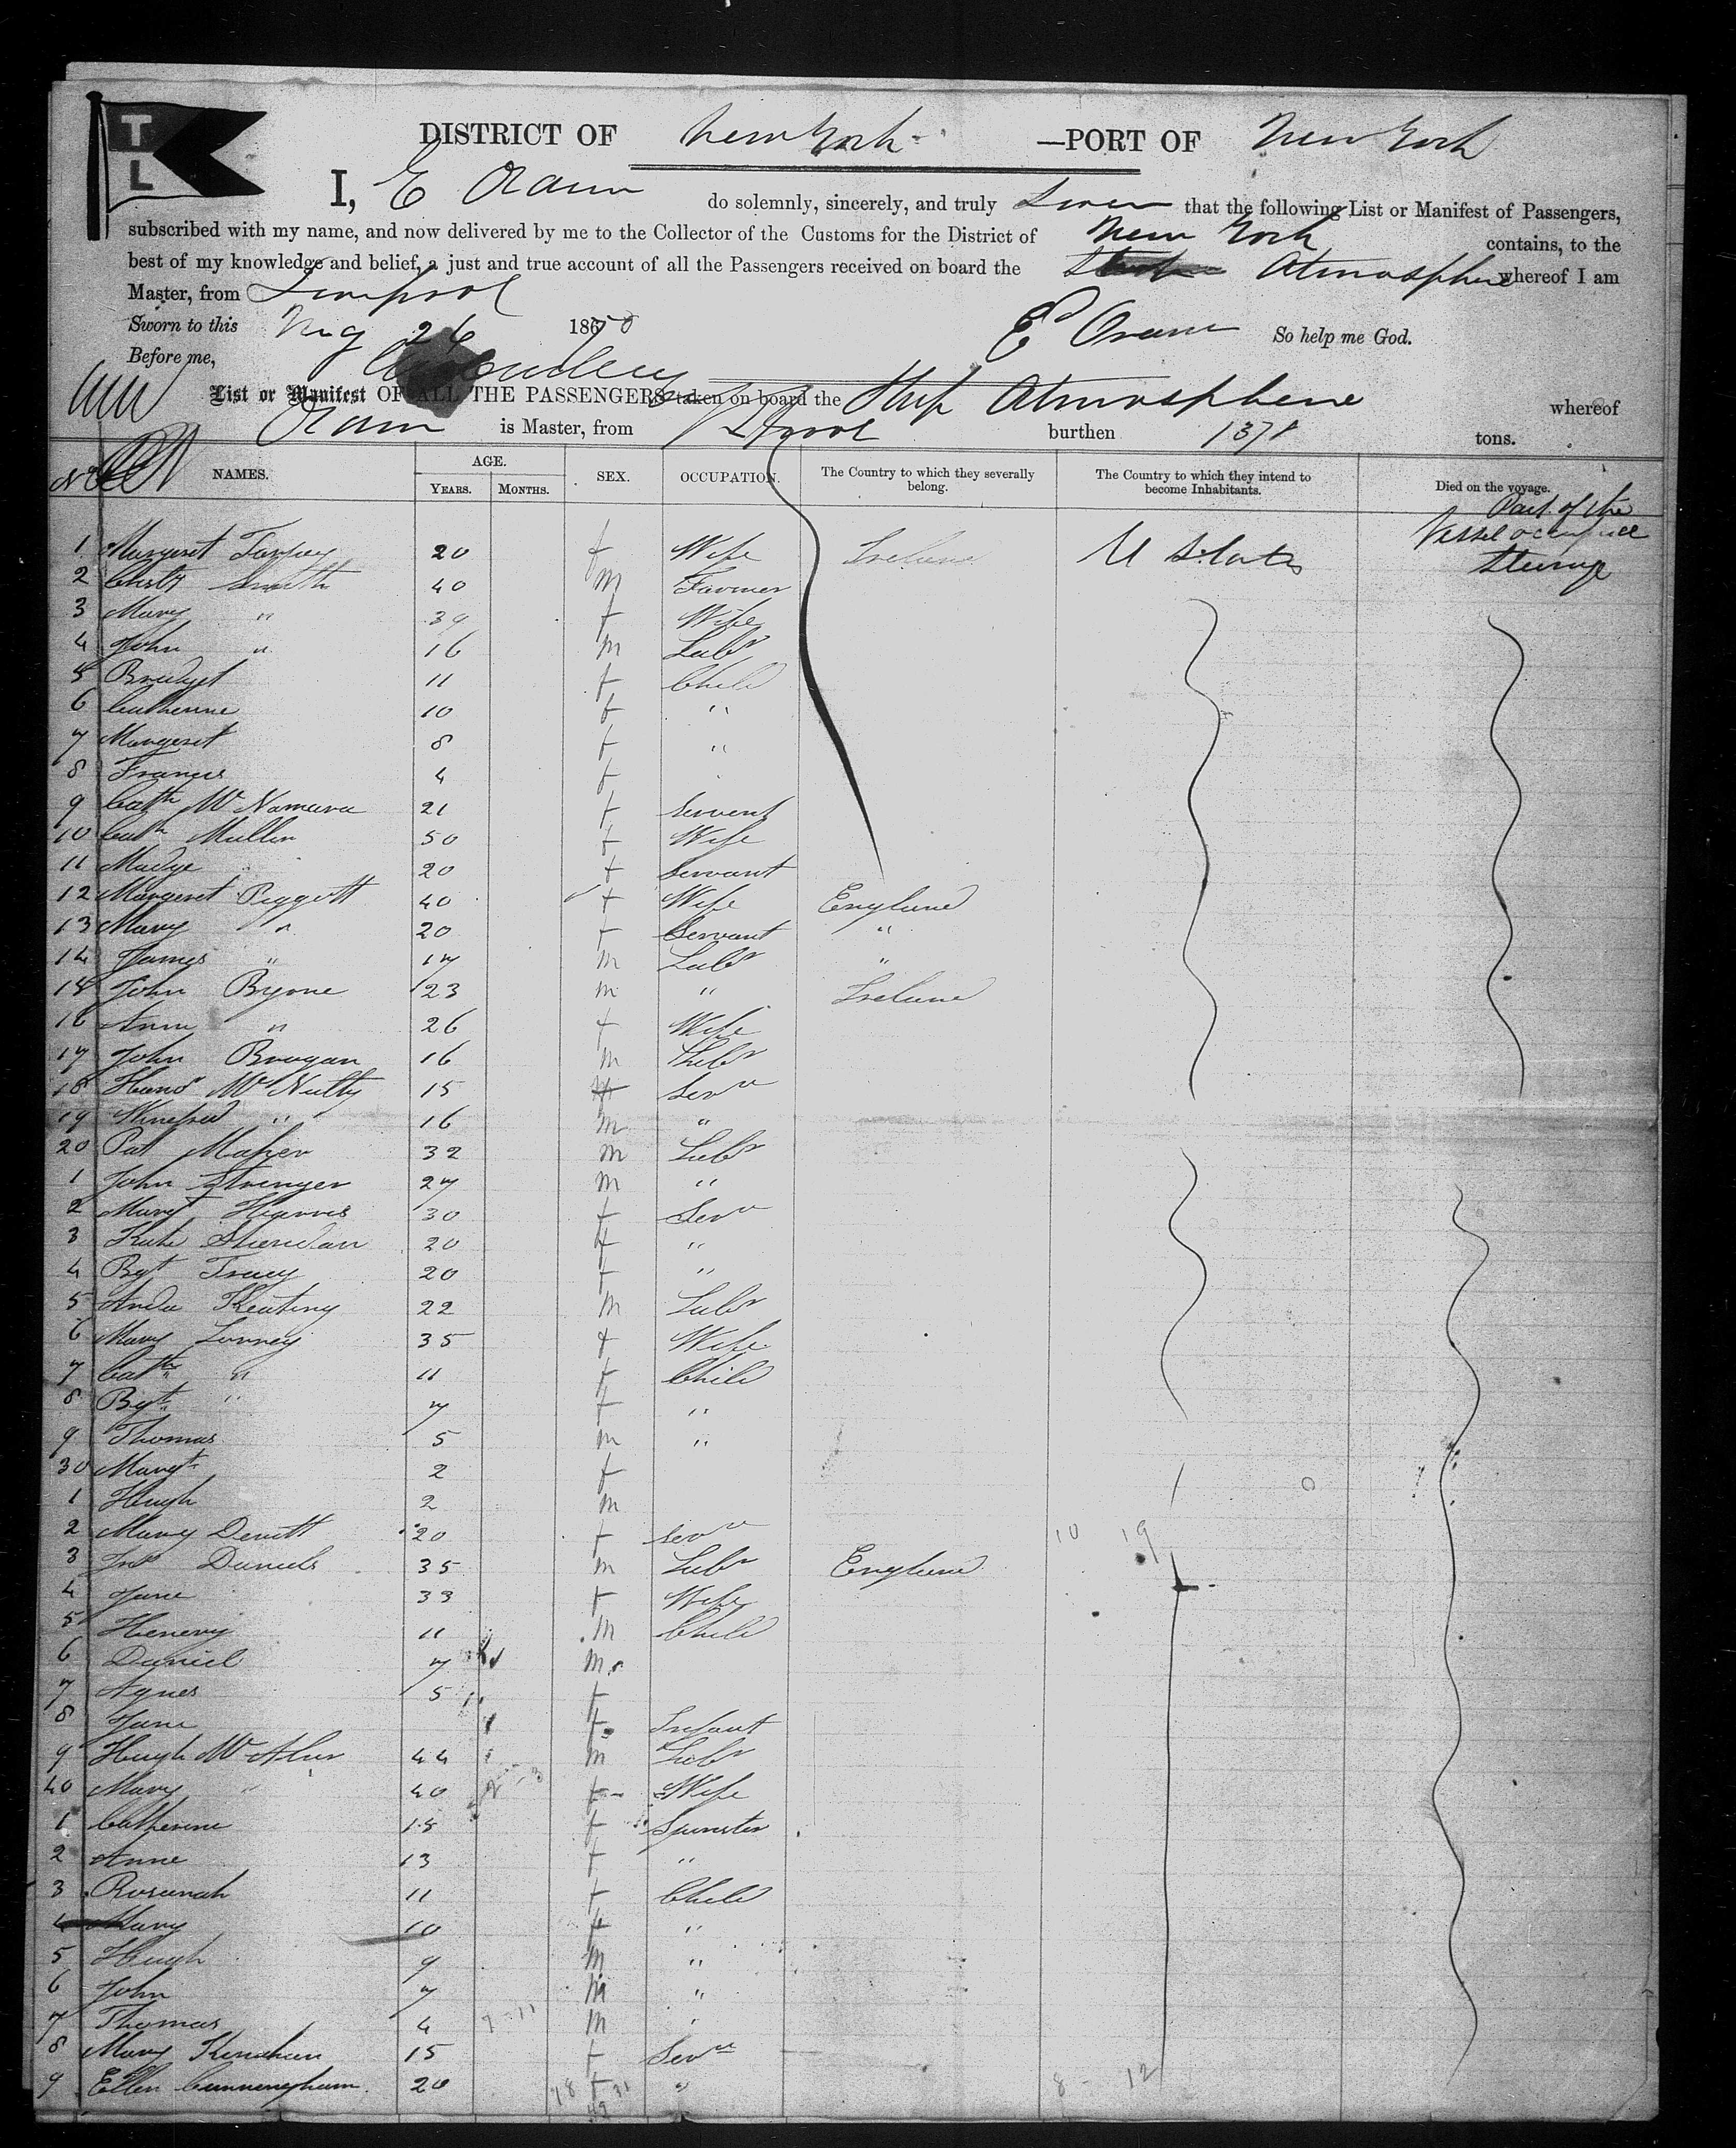 T L
DISTRICT OF New York —PORT OF New York
I, E Oram do solemnly, sincerely, and truly Swear that the following List or Manifest of Passengers,
subscribed with my name, and now delivered by me to the Collector of the Customs for the District of New York contains, to the
best of my knowledge and belief, a just and true account of all the Passengers received on board the Atmosphere whereof I am
Master, from Liverpool
Sworn to this Aug 26 1870 Ed Oram So help me God.
Before me,
List or Manifest OF ALL THE PASSENGERS taken on board the Ship Atmosphere whereof
Oram is Master, from L'pool burthen 1378 tons.
NAMES. AGE. SEX. OCCUPATION. The Country to which they severally belong. The Country to which they intend to become Inhabitants. Died on the voyage.
YEARS. MONTHS.
Part of the Vessel occupied
1 Margeret Tarpey 20 f Wife Ireland U States Steerage
2 Christy Smith 40 m Farmer
3 Mary " 39 f Wife
4 John " 16 m Labr
5 Bridget 11 f Child
6 Catherine 10 f "
7 Margeret 8 f "
8 Frances 4 f
9 Cath McNamara 21 f Servant
10 Cath Mullin 50 f Wife
11 Madge 20 f Servant
12 Margeret Piggott 40 f Wife England
13 Mary " 20 f Servant "
14 James " 17 m Labr "
15 John Bryone 23 m " Ireland
16 Ann " 26 f Wife
17 John Brogan 16 m Labr
18 McNulty 15 Serv
19 Winefred " 16 m "
20 Pat Maher 32 m Labr
1 John Stringer 27 m "
2 Mary Harris 30 f Serv
3 Kate Sheridan 20 f "
4 Bgt Tracy 20 f "
5 Andw Keating 22 m Labr
6 Mary Lunney 35 f Wife
7 Cath " 11 f Child
8 Bgt " 7 f "
9 Thomas 5 m "
30 Margt 2 f
1 Hugh 2 m
2 Mary Devitt 20 f Serv
3 Jno Daniels 35 m Labr England
4 Jane 33 f Wife
5 Henery 11 m Child
6 Daniel 7 m
7 Agnes 5 f
8 Jane f Infant
9 Hugh 44 m Labr
40 Mary " 40 f Wife
1 Catherine 15 f Spinster
2 Anne 13 f "
3 Rosannah 11 f Child
4 Mary 10 f "
5 Hugh 9 m "
6 John 7 m "
7 Thomas 4 m "
8 Mary Kinahan 15 f Serv
9 Ellen Cunnengham 20 f "